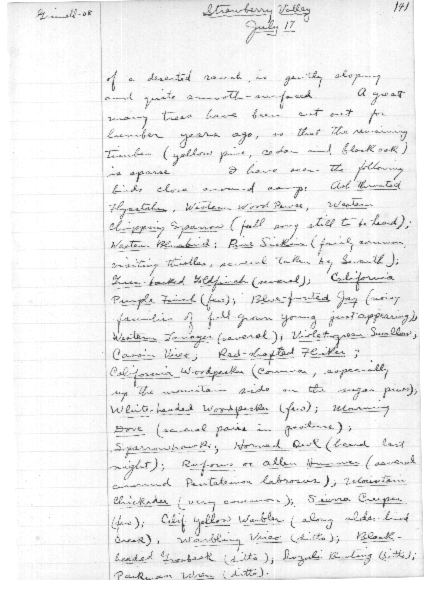 Grinnell-08
Strawberry Valley
July 17
141
of a deserted ranch, is gently sloping
and quite smooth-surfaced. A great
many trees have been cut out for
lumber years ago, so that the remaining
timber (yellow pine, cedar and black oak)
is sparse. I have seen the following
birds close around camp: Ash throated
Flycatcher, Western Wood Pewee, Western
Chipping Sparrow (full song still to be heard);
Western Bluebird; Pine Siskin (fairly common,
visiting thistles, several taken by Swarth);
Green-backed Goldfinch (several); California
Purple Finch (few); Blue-fronted Jay (noisy
families of full grown young just appearing);
Western Tanager (several); Violet-green Swallow,
Cassin Vireo, Red-shafted Flicker;
California Woodpecker (common, especially
up the mountain side on the sugar pines);
White-headed Woodpecker (few); Mourning
Dove (several pairs in);
Sparrowhawk, Horned Owl (heard last
night); Rufous or Allen Hummer (several
around Pentstemon labrosus); Mountain
Chickadee (very common); Sierra Creeper
(few); Calif Yellow Warbler (along alder-lined
creek), Warbling Vireo (ditto); Black-
headed Grosbeak (ditto), Lazuli Bunting (ditto);
Parkman Wren (ditto).